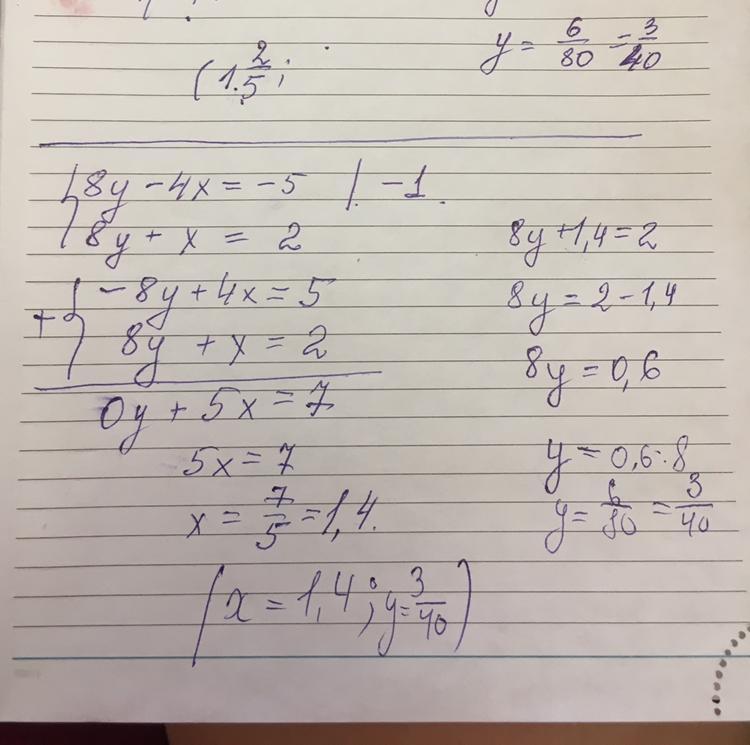 y = 6/80 = 3/40
(1 2/5;
{8y - 4x = -5 | -1.
8y + x = 2
+{-8y + 4x = 5
8y + x = 2
0y + 5x = 7
5x = 7
x = 7/5 = 1,4.
8y + 1,4 = 2
8y = 2 - 1,4
8y = 0,6
y = 0,6 : 8
y = 6/80 = 3/40
(x = 1,4; y = 3/40)